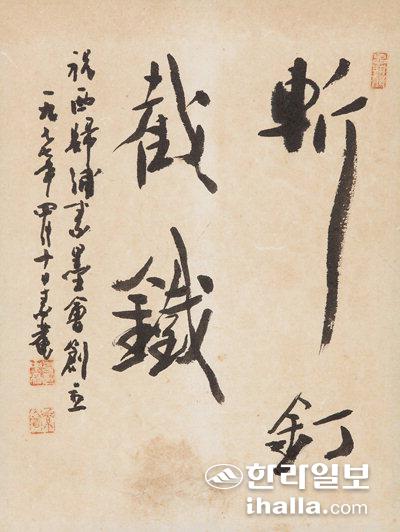 斬釘
截鐵
祝西歸浦素墨會創立
一九七七年四月十日素菴
한라일보
ihalla.com